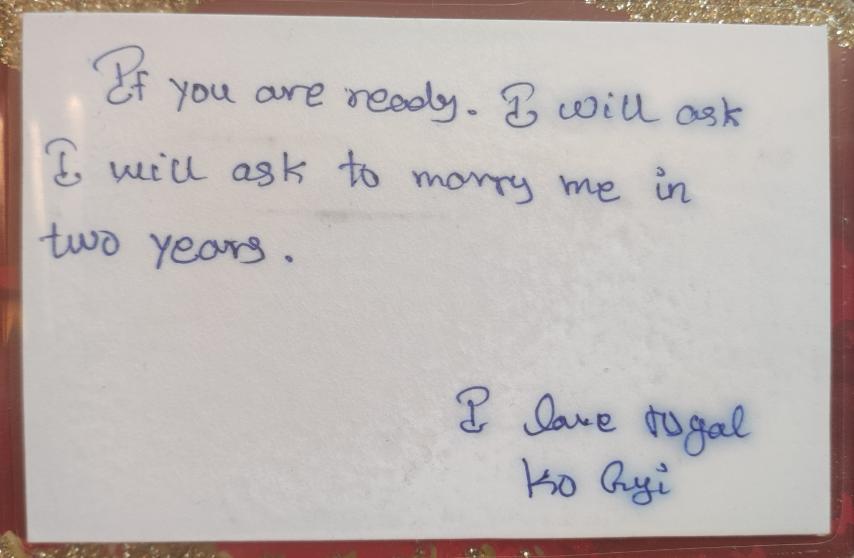 If you are ready. I will ask
I will ask to marry me in
two years.
I love
Ko